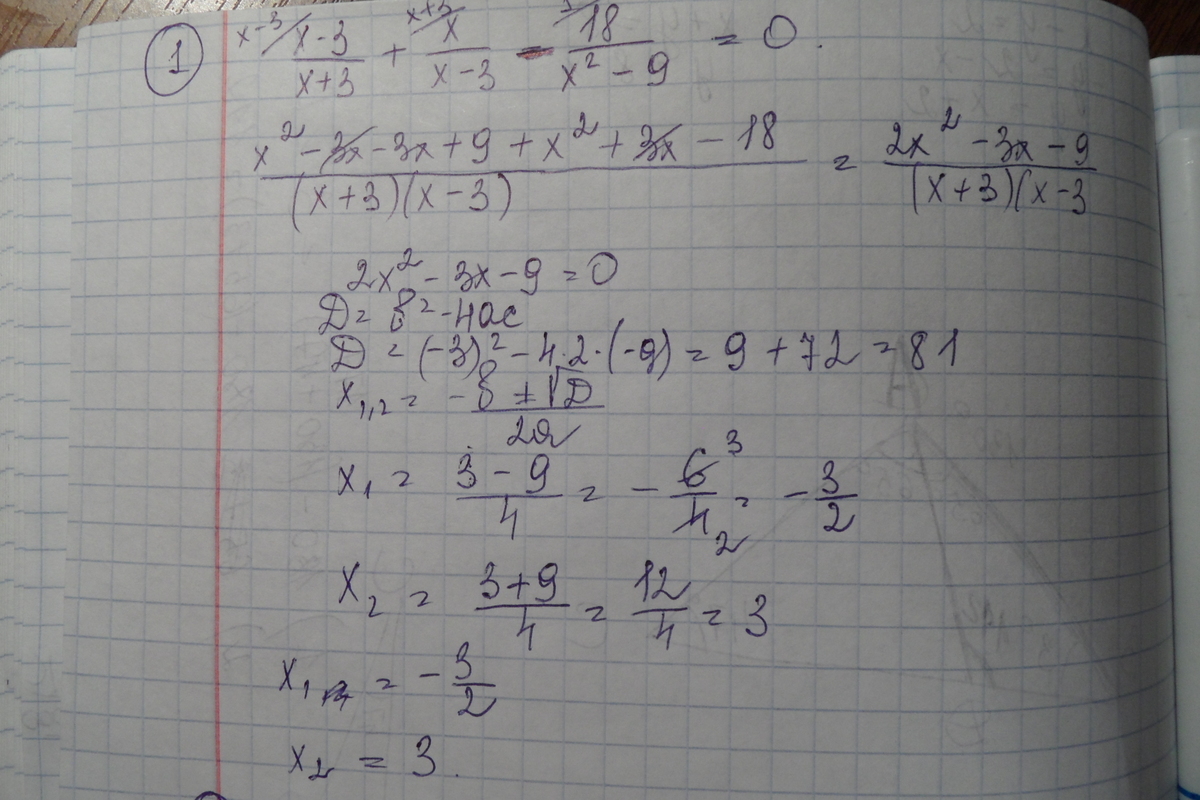 1
x-3/ x-3/x+3 + x+3/ x/x-3 - 1/ 18/x² - 9 = 0.
x² - 3x - 3x + 9 + x² + 3x - 18/(x+3)(x-3) = 2x² - 3x - 9/(x+3)(x-3
2x² - 3x - 9 = 0
D = b² - 4ac
D = (-3)² - 4·2·(-9) = 9 + 72 = 81
x₁,₂ = -b ± √D/2a
x₁ = 3 - 9/4 = - 6³/4₂ = - 3/2
x₂ = 3+9/4 = 12/4 = 3
x₁ = - 3/2
x₂ = 3.